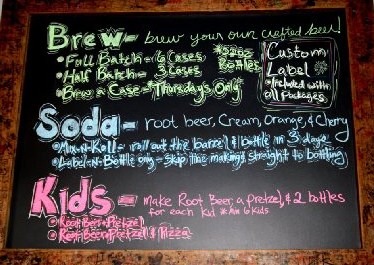 Brew- brew your own crafted beer!
• Full Batch - 6 Cases
• Half Batch - 3 Cases
• Brew a Case - Thursdays Only
*22oz
Bottles
Custom
Label *
• Included with
all Packages
Soda- root beer, Cream, Orange, & Cherry
• Mix-N-Roll - roll out the barrel & bottle in 3 days
• Label-N-Bottle only - Skip the making, straight to bottling
Kids - Make Root Beer, a Pretzel, & 2 bottles
for each kid *Min 6 kids
• Root Beer & Pretzel
• Root Beer, Pretzel & Pizza